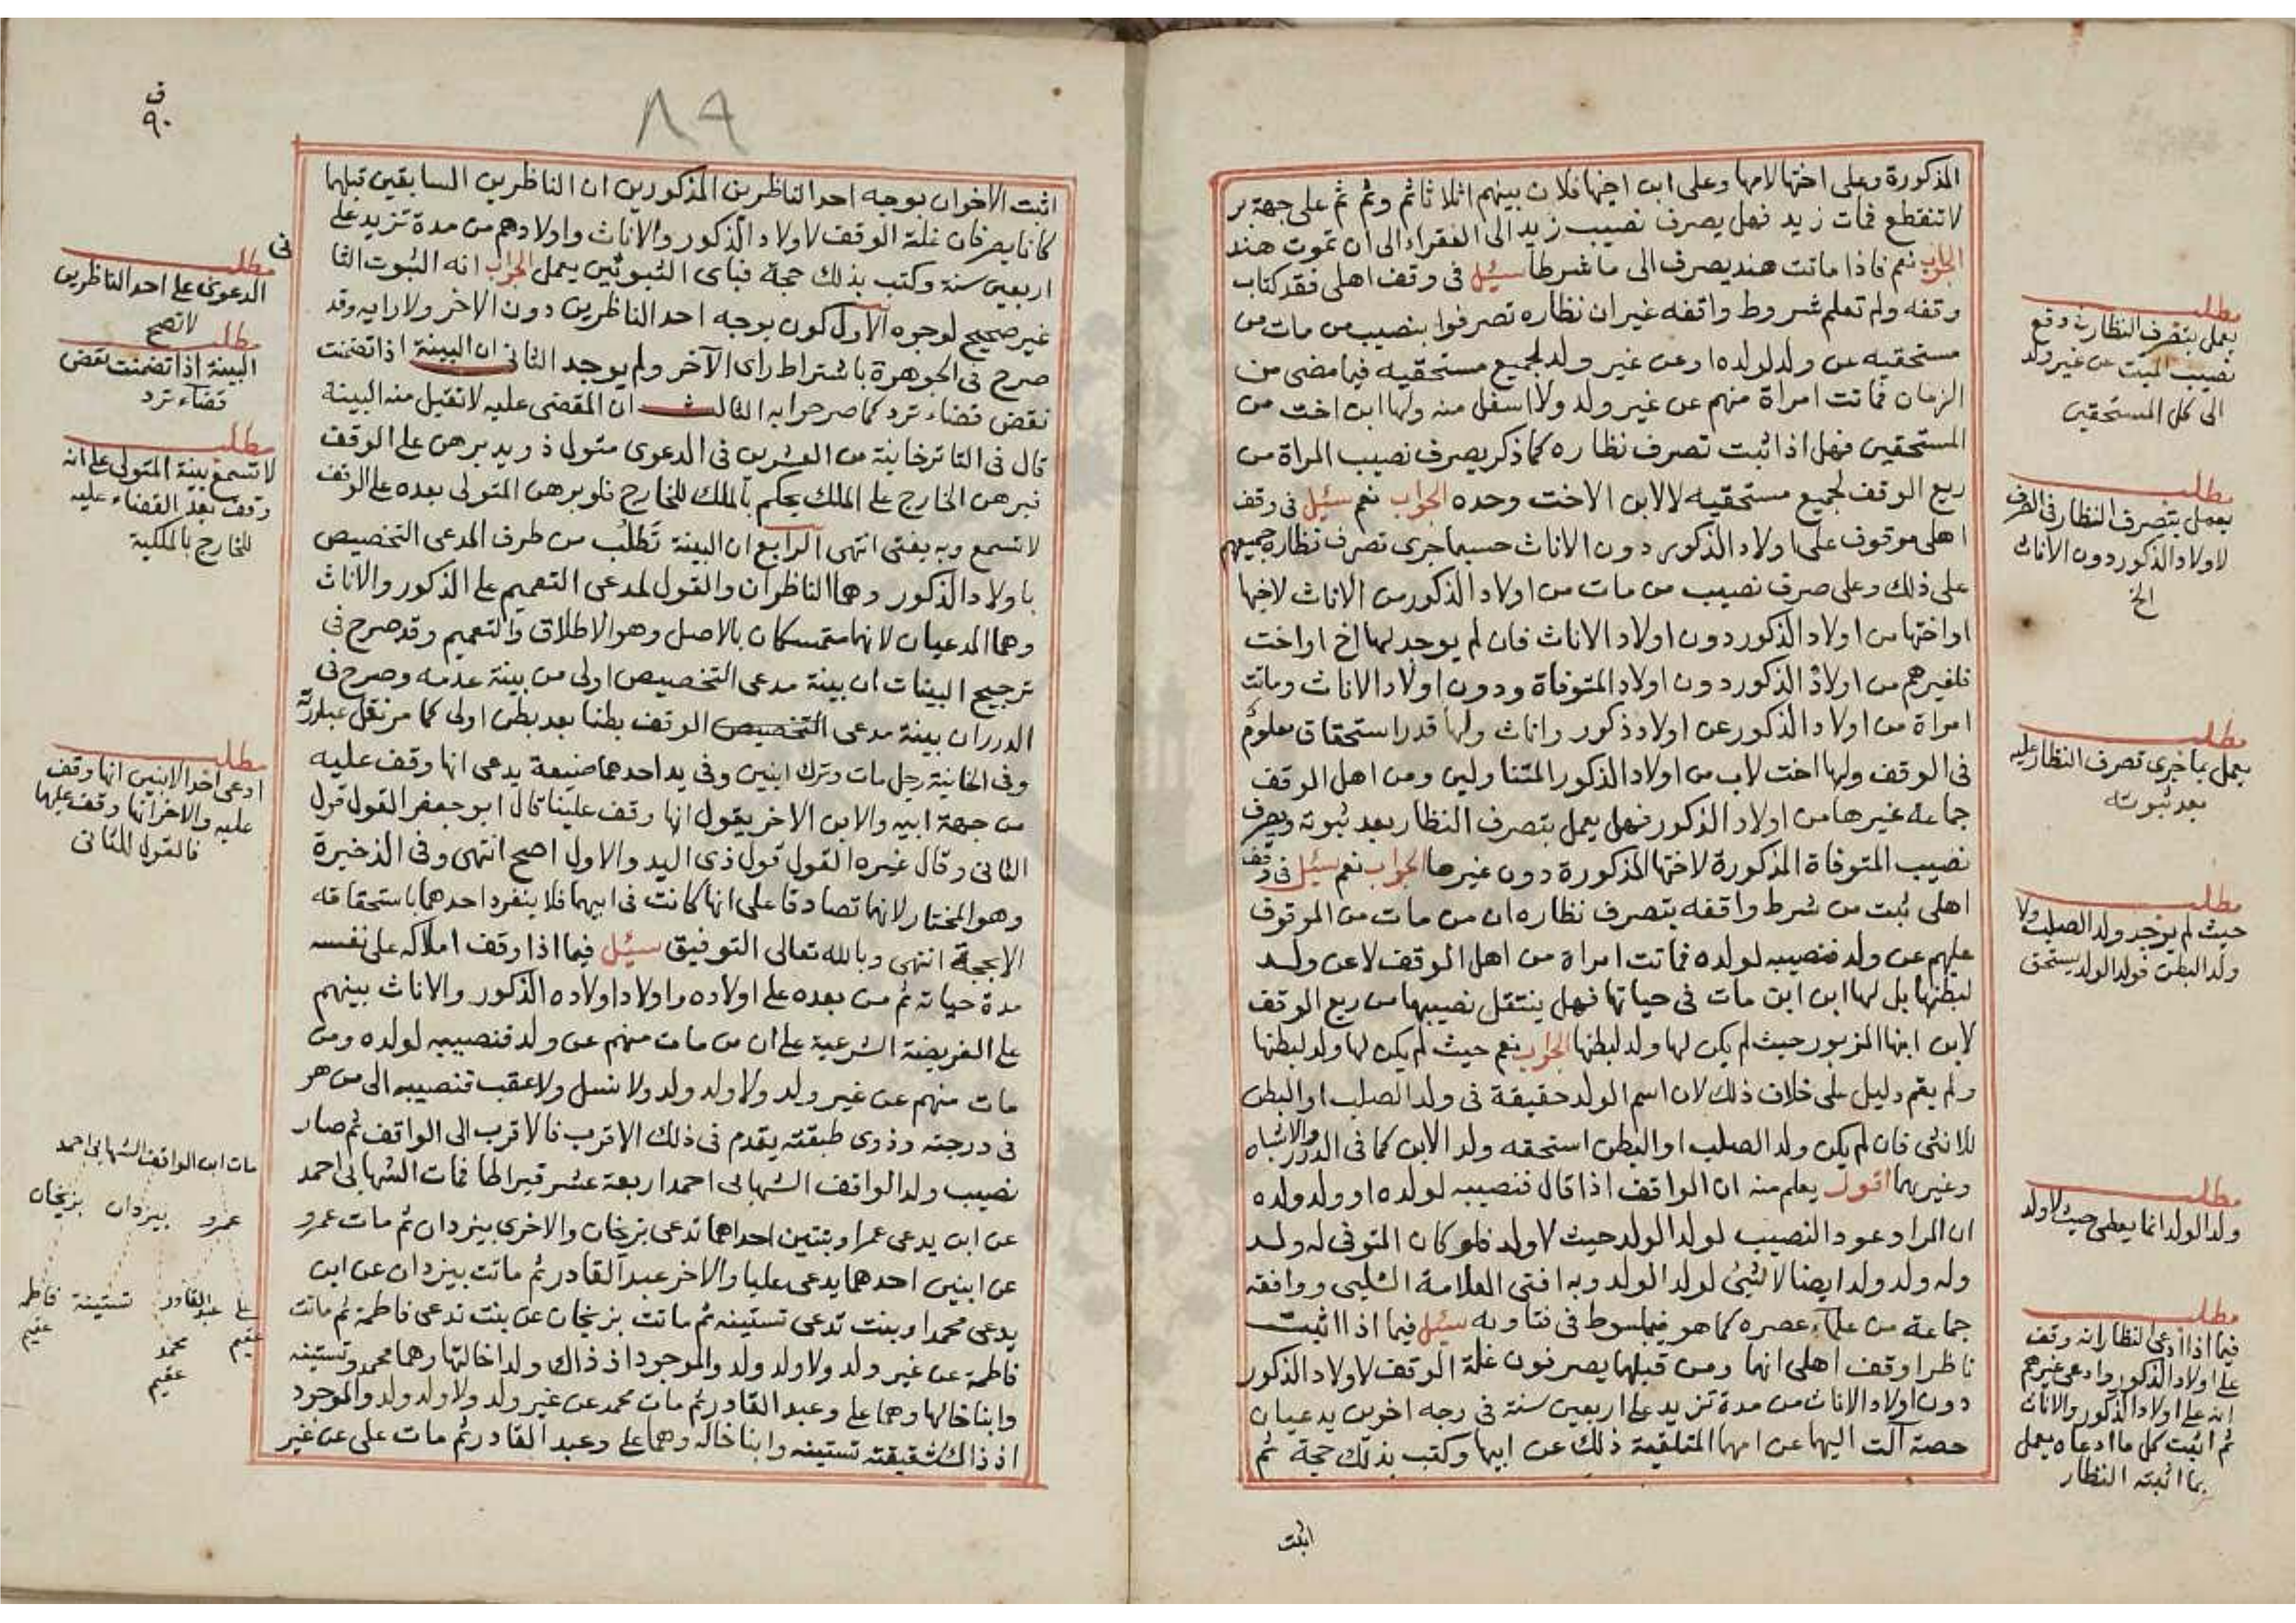 المذكورة وعلى اختها لامها وعلى ابن اختها فلان بينهم اثلاثا ثم وثم ثم على جهة بر
لا تنقطع فمات زيد فهل يصرف نصيب زيد الى الفقراء الى ان تموت هند
الجواب نعم فاذا ماتت هند يصرف الى ما شرطا سئل فى وقف اهلى فقد كتاب
وقفه ولم تعلم شروط واقفه غير ان نظاره تصرفوا بنصيب من مات من
مستحقيه عن ولد لولده او عن غير ولد لجميع مستحقيه فيما مضى من
الزمان فماتت امراة منهم عن غير ولد ولا اسفل منه ولها ابن اخت من
المستحقين فهل اذا ثبت تصرف نظاره كما ذكر يصرف نصيب المراة من
ريع الوقف لجميع مستحقيه لا لابن الاخت وحده الجواب نعم سئل فى وقف
اهلى موقوف على اولاد الذكور دون الاناث حسبما جرى تصرف نظاره جميعهم
على ذلك وعلى صرف نصيب من مات من اولاد الذكور من الاناث لاخها
او اختها من اولاد الذكور دون اولاد الاناث فان لم يوجد لها اخ او اخت
فلغيرهم من اولاد الذكور دون اولاد المتوفاة ودون اولاد الاناث وماتت
امراة من اولاد الذكور عن اولاد ذكور واناث ولها قدر استحقاق معلوم
فى الوقف ولها اخت لاب من اولاد الذكور المتناولين ومن اهل الوقف
جماعة غيرها من اولاد الذكور فهل يعمل بتصرف النظار بعد ثبوته ويصرف
نصيب المتوفاة المذكورة لاختها المذكورة دون غيرها الجواب نعم سئل فى وقف
اهلى ثبت من شرط واقفه بتصرف نظاره ان من مات من الموقوف
عليهم عن ولد فنصيبه لولده فماتت امراة من اهل الوقف لا عن ولد
لبطنها بل لها ابن ابن مات فى حياتها فهل ينتقل نصيبها من ريع الوقف
لابن ابنها المزبور حيث لم يكن لها ولد لبطنها الجواب نعم حيث لم يكن لها ولد لبطنها
ولم يقم دليل على خلاف ذلك لان اسم الولد حقيقة فى ولد الصلب او البطن
للانثى فان لم يكن ولد الصلب او البطن استحقه ولد الابن كما فى الدرر والاشباه
وغيرهما اقول يعلم منه ان الواقف اذا قال فنصيبه لولده او ولد ولده
ان المراد عود النصيب لولد الولد حيث لا ولد فلو كان المتوفى له ولد
وله ولد ولد ايضا لا شئ لولد الولد وبه افتى العلامة الشلبى ووافقه
جماعة من علماء عصره كما هو مبسوط فى فتاويه سئل فيما اذا اثبت
ناظرا وقف اهلى انهما ومن قبلهما يصرفون غلة الوقف لاولاد الذكور
دون اولاد الاناث من مدة تزيد على اربعين سنة فى وجه اخوين يدعيان
حصة آلت اليهما عن امهما المتلقية ذلك عن ابيها وكتب بذلك حجة ثم
اثبت
مطلب
يعمل بتصرف النظار فى دفع
نصيب الميت عن غير ولد
الى كل المستحقين
مطلب
يعمل بتصرف النظار فى الصرف
لاولاد الذكور دون الاناث
الخ
مطلب
يعمل بما جرى تصرف النظار عليه
بعد ثبوته
مطلب
حيث لم يوجد ولد الصلب ولا
ولد البطن فولد الولد يستحق
مطلب
ولد الولد انما يعطى حيث لا ولد
مطلب
فيما اذا ادعى النظار انه وقف
على اولاد الذكور وادعى غيرهم
انه على اولاد الذكور والاناث
ثم اثبت كل ما ادعاه يعمل
بما اثبته النظار
ف
٩٠
٨٩
اثبت الاخوان بوجه احد الناظرين المذكورين ان الناظرين السابقين قبلهما
كانا يصرفان غلة الوقف لاولاد الذكور والاناث واولادهم من مدة تزيد على
اربعين سنة وكتب بذلك حجة فباى الثبوتين يعمل الجواب انه الثبوت الثانى
غير صحيح لوجوه الاول كون بوجه احد الناظرين دون الاخر ولا رايه وقد
صرح فى الجوهرة باشتراط راى الآخر ولم يوجد الثانى ان البينة اذا تضمنت
نقض قضاء ترد كما صرحوا به الثالث ان المقضى عليه لا تقبل منه البينة
قال فى التاترخانية من العشرين فى الدعوى متول ذو يد برهن على الوقف
فبرهن الخارج على الملك يحكم بالملك للخارج فلو برهن المتولى بعده على الوقف
لا تسمع وبه يفتى انتهى الرابع ان البينة تطلب من طرف المدعى التخصيص
باولاد الذكور وهما الناظران والقول لمدعى التعميم على الذكور والاناث
وهما المدعيان لانهما متمسكان بالاصل وهو الاطلاق والتعميم وقد صرح فى
ترجيح البينات ان بينة مدعى التخصيص اولى من بينة عدمه وصرح فى
الدرر ان بينة مدعى التخصيص الوقف بطنا بعد بطن اولى كما مر نقل عبارته
وفى الخانية رجل مات وترك ابنين وفى يد احدهما ضيعة يدعى انها وقف عليه
من جهة ابيه والابن الاخر يقول انها وقف علينا قال ابو جعفر القول قول
الثانى وقال غيره القول قول ذى اليد والاول اصح انتهى وفى الذخيرة
وهو المختار لانهما تصادقا على انها كانت فى ابيهما فلا ينفرد احدهما باستحقاقه
الا بحجة انتهى وبالله تعالى التوفيق سئل فيما اذا وقف املاكه على نفسه
مدة حياته ثم من بعده على اولاده واولاد اولاده الذكور والاناث بينهم
على الفريضة الشرعية على ان من مات منهم عن ولد فنصيبه لولده ومن
مات منهم عن غير ولد ولا ولد ولد ولا نسل ولا عقب فنصيبه الى من هو
فى درجته وذوى طبقته يقدم فى ذلك الاقرب فالاقرب الى الواقف ثم صار
نصيب ولد الواقف الشهابى احمد اربعة عشر قيراطا فمات الشهابى احمد
عن ابن يدعى عمرا وبنتين احداهما تدعى بزيخان والاخرى بيزدان ثم مات عمرو
عن ابنين احدهما يدعى عليا والاخر عبد القادر ثم ماتت بيزدان عن ابن
يدعى محمدا وبنت تدعى تستينه ثم ماتت بزيخان عن بنت تدعى فاطمة ثم ماتت
فاطمة عن غير ولد ولا ولد ولد والموجود اذ ذاك ولدا خالتها وهما محمد وتستينه
وابنا خالها وهما على وعبد القادر ثم مات محمد عن غير ولد ولا ولد ولد والموجود
اذ ذاك شقيقته تستينه وابنا خاله وهما على وعبد القادر ثم مات على عن غير
فى
مطلب
الدعوى على احد الناظرين
لا تصح
مطلب
البينة اذا تضمنت نقض
قضاء ترد
مطلب
لا تسمع بينة المتولى على انه
وقف بعد القضاء عليه
للخارج بالملكية
مطلب
ادعى احد الابنين انها وقف
عليه والاخر انها وقف عليهما
فالقول للثانى
مات ابن الواقف الشهابى احمد
عمرو بيزدان بزيخان
على عبد القادر تستينة فاطمة
عقيم محمد عقيم
عقيم